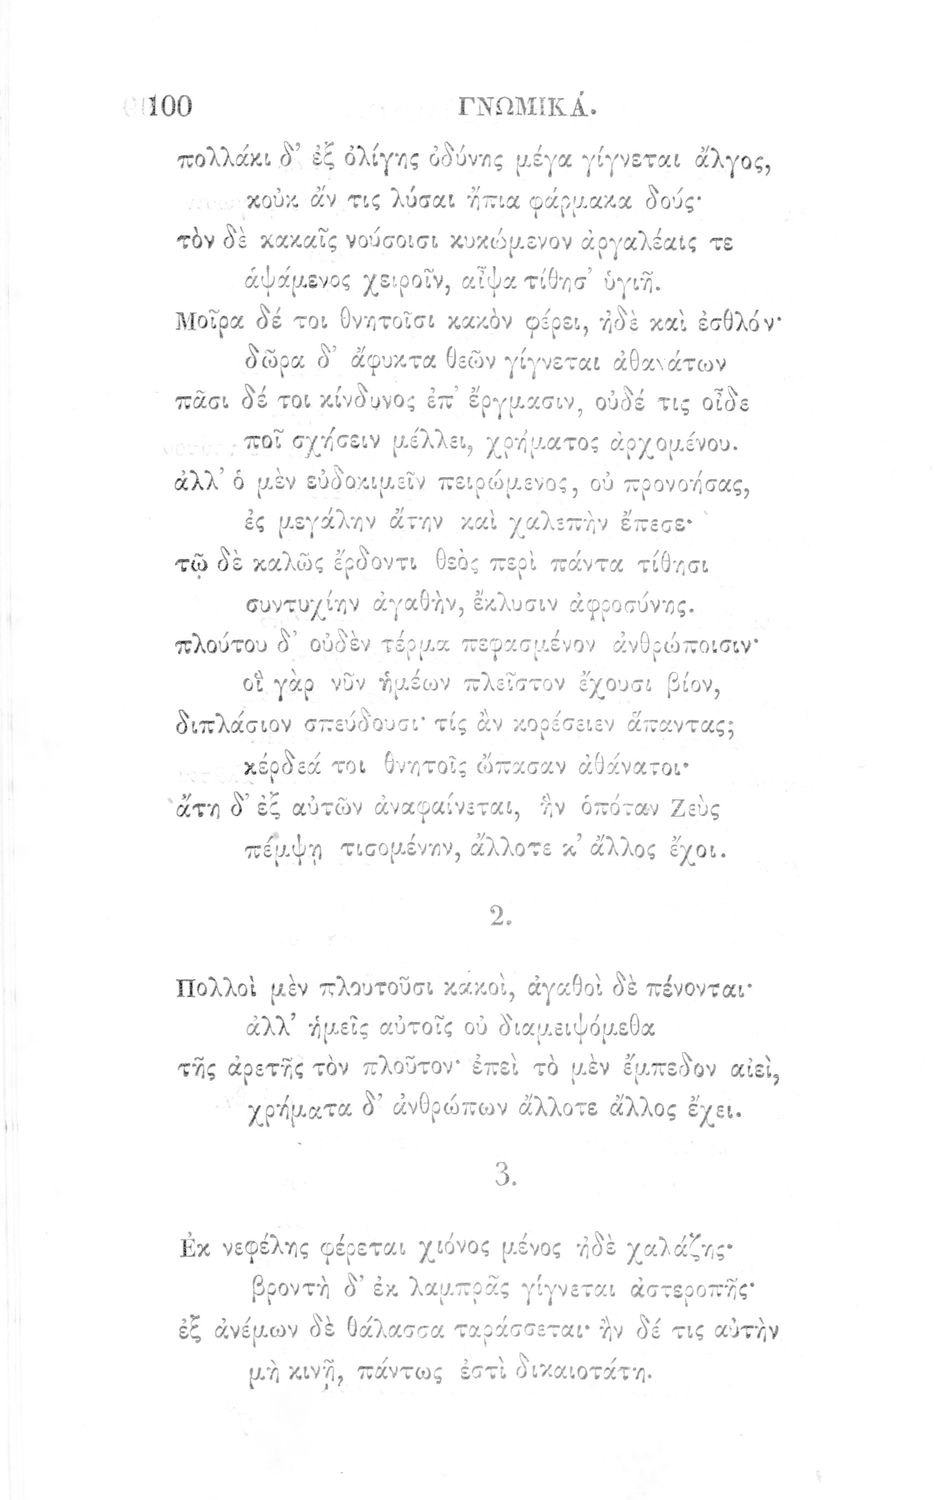 100 ΓΝΩΜΙΚΆ.
πολλάκι δ’ ἐξ ὀλίγης ὀδύνης μέγα γίγνεται ἄλγος,
κοὐκ ἄν τις λύσαι ἤπια φάρμακα δούς·
τὸν δὲ κακαῖς νούσοισι κυκώμενον ἀργαλέαις τε
ἁψάμενος χειροῖν, αἶψα τίθησ’ ὑγιῆ.
Μοῖρα δέ τοι θνητοῖσι κακὸν φέρει, ἠδὲ καὶ ἐσθλόν·
δῶρα δ’ ἄφυκτα θεῶν γίγνεται ἀθανάτων
πᾶσι δέ τοι κίνδυνος ἐπ’ ἔργμασιν, οὐδέ τις οἶδε
ποῖ σχήσειν μέλλει, χρήματος ἀρχομένου.
ἀλλ’ ὁ μὲν εὐδοκιμεῖν πειρώμενος, οὐ προνοήσας,
ἐς μεγάλην ἄτην καὶ χαλεπὴν ἔπεσε·
τῷ δὲ καλῶς ἔρδοντι θεὸς περὶ πάντα τίθησι
συντυχίην ἀγαθὴν, ἔκλυσιν ἀφροσύνης.
πλούτου δ’ οὐδὲν τέρμα πεφασμένον ἀνθρώποισιν·
οἳ γὰρ νῦν ἡμέων πλεῖστον ἔχουσι βίον,
διπλάσιον σπεύδουσι· τίς ἂν κορέσειεν ἅπαντας;
κέρδεά τοι θνητοῖς ὤπασαν ἀθάνατοι·
ἄτη δ’ ἐξ αὐτῶν ἀναφαίνεται, ἣν ὁπόταν Ζεὺς
πέμψῃ τισομένην, ἄλλοτε κ’ ἄλλος ἔχοι.
2.
Πολλοὶ μὲν πλουτοῦσι κακοὶ, ἀγαθοὶ δὲ πένονται·
ἀλλ’ ἡμεῖς αὐτοῖς οὐ διαμειψόμεθα
τῆς ἀρετῆς τὸν πλοῦτον· ἐπεὶ τὸ μὲν ἔμπεδον αἰεὶ,
χρήματα δ’ ἀνθρώπων ἄλλοτε ἄλλος ἔχει.
3.
Ἐκ νεφέλης φέρεται χιόνος μένος ἠδὲ χαλάζης·
βροντὴ δ’ ἐκ λαμπρᾶς γίγνεται ἀστεροπῆς·
ἐξ ἀνέμων δὲ θάλασσα ταράσσεται· ἢν δέ τις αὐτὴν
μὴ κινῇ, πάντως ἐστὶ δικαιοτάτη.